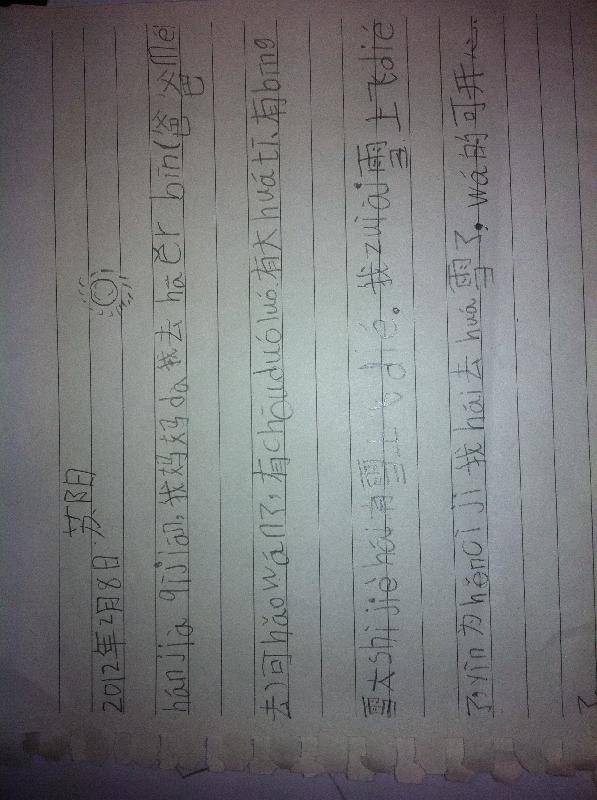 苏阳
2012年2月8日
hán jià qī jiān，我妈妈 da 我去 hā ěr bīn（爸爸 méi
去）可 hǎo wán 了，有 chōu duó luó、有大 huá tī、有 bīng
雪大 shì jiè hái 有雪上飞 dié。我 zuì ài 雪上飞 dié
了，yīn 为 hěn cì jī 我 hái 去 huá 雪了，wá 的可开心
了